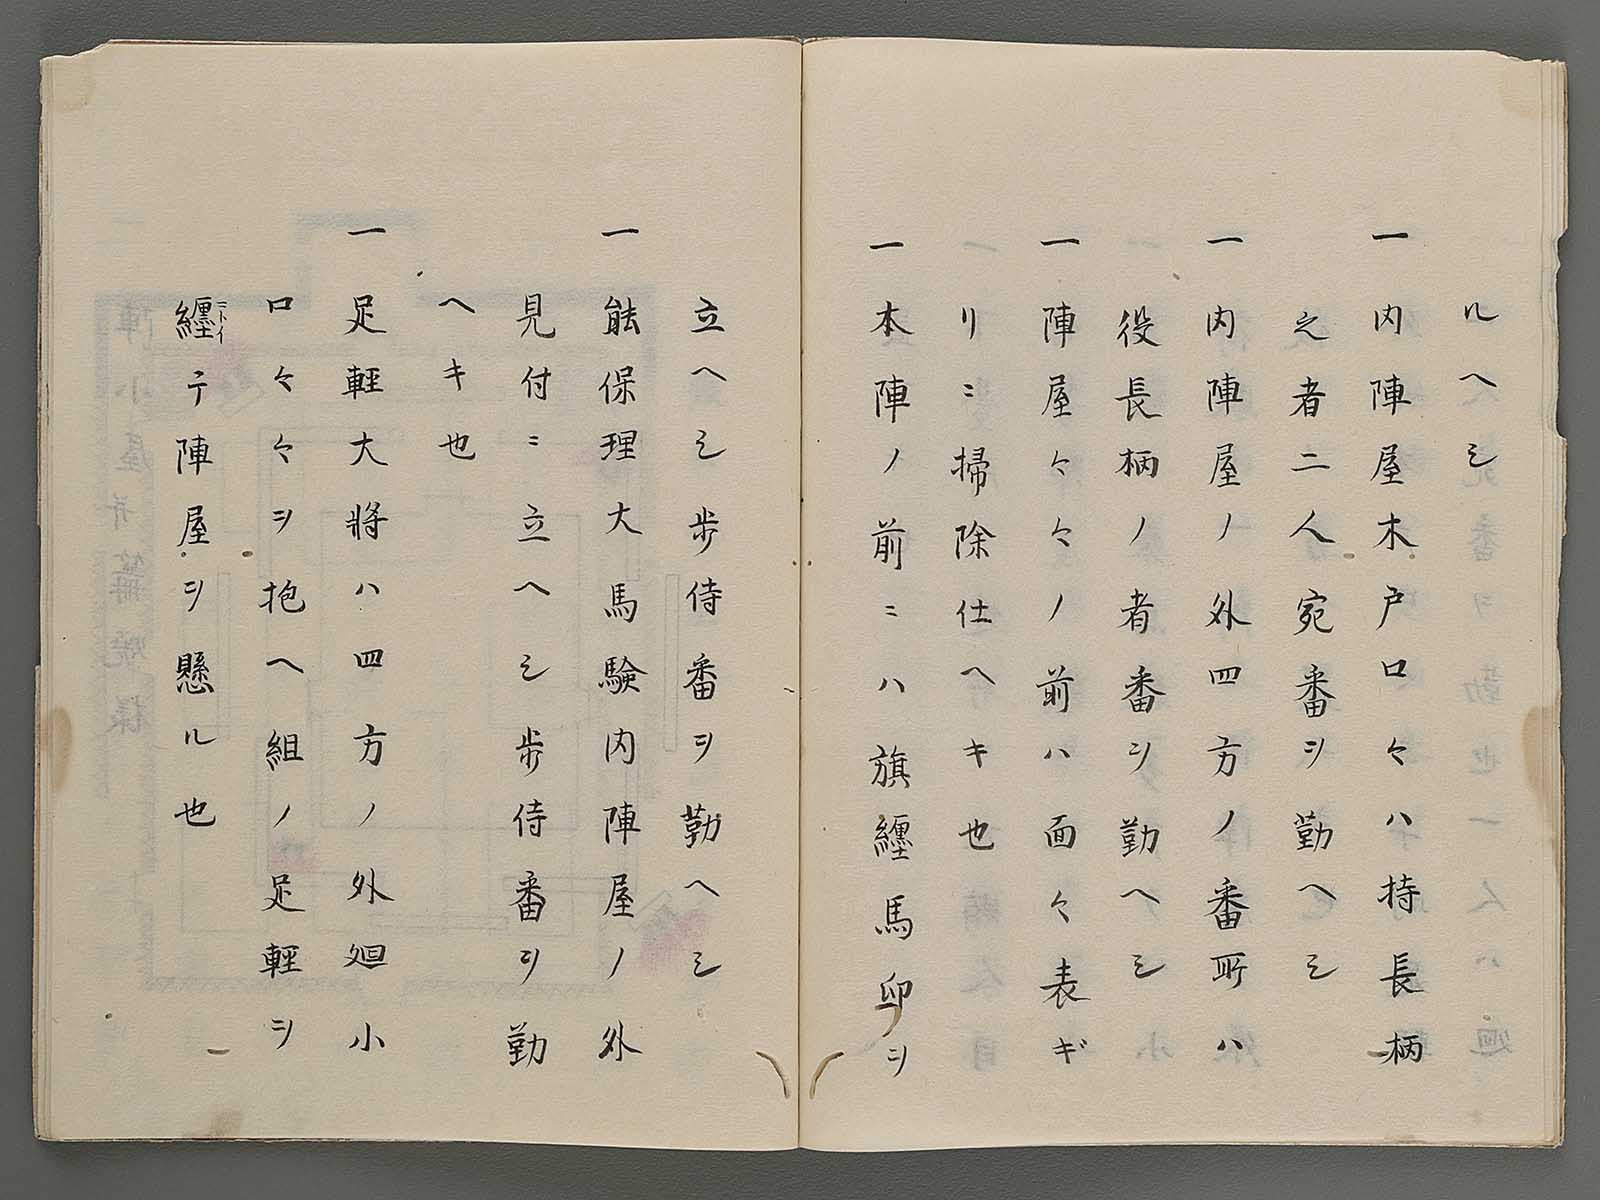 ルヘシ
一 内陣屋木戸口々ハ持長柄
之者二人宛番ヲ勤ヘシ
一 内陣屋ノ外四方ノ番所ハ
役長柄ノ者番ヲ勤ヘシ
一 陣屋々々ノ前ハ面々表ギ
リニ掃除仕ヘキ也
一 本陣ノ前ニハ旗纏馬印ヲ
立ヘシ歩侍番ヲ勤ヘシ
一 䏻保理大馬験内陣屋ノ外
見付ニ立ヘシ歩侍番ヲ勤
ヘキ也
一 足輕大將ハ四方ノ外廻小
口々々ヲ抱ヘ組ノ足輕ヲ
纏テ陣屋ヲ懸ル也